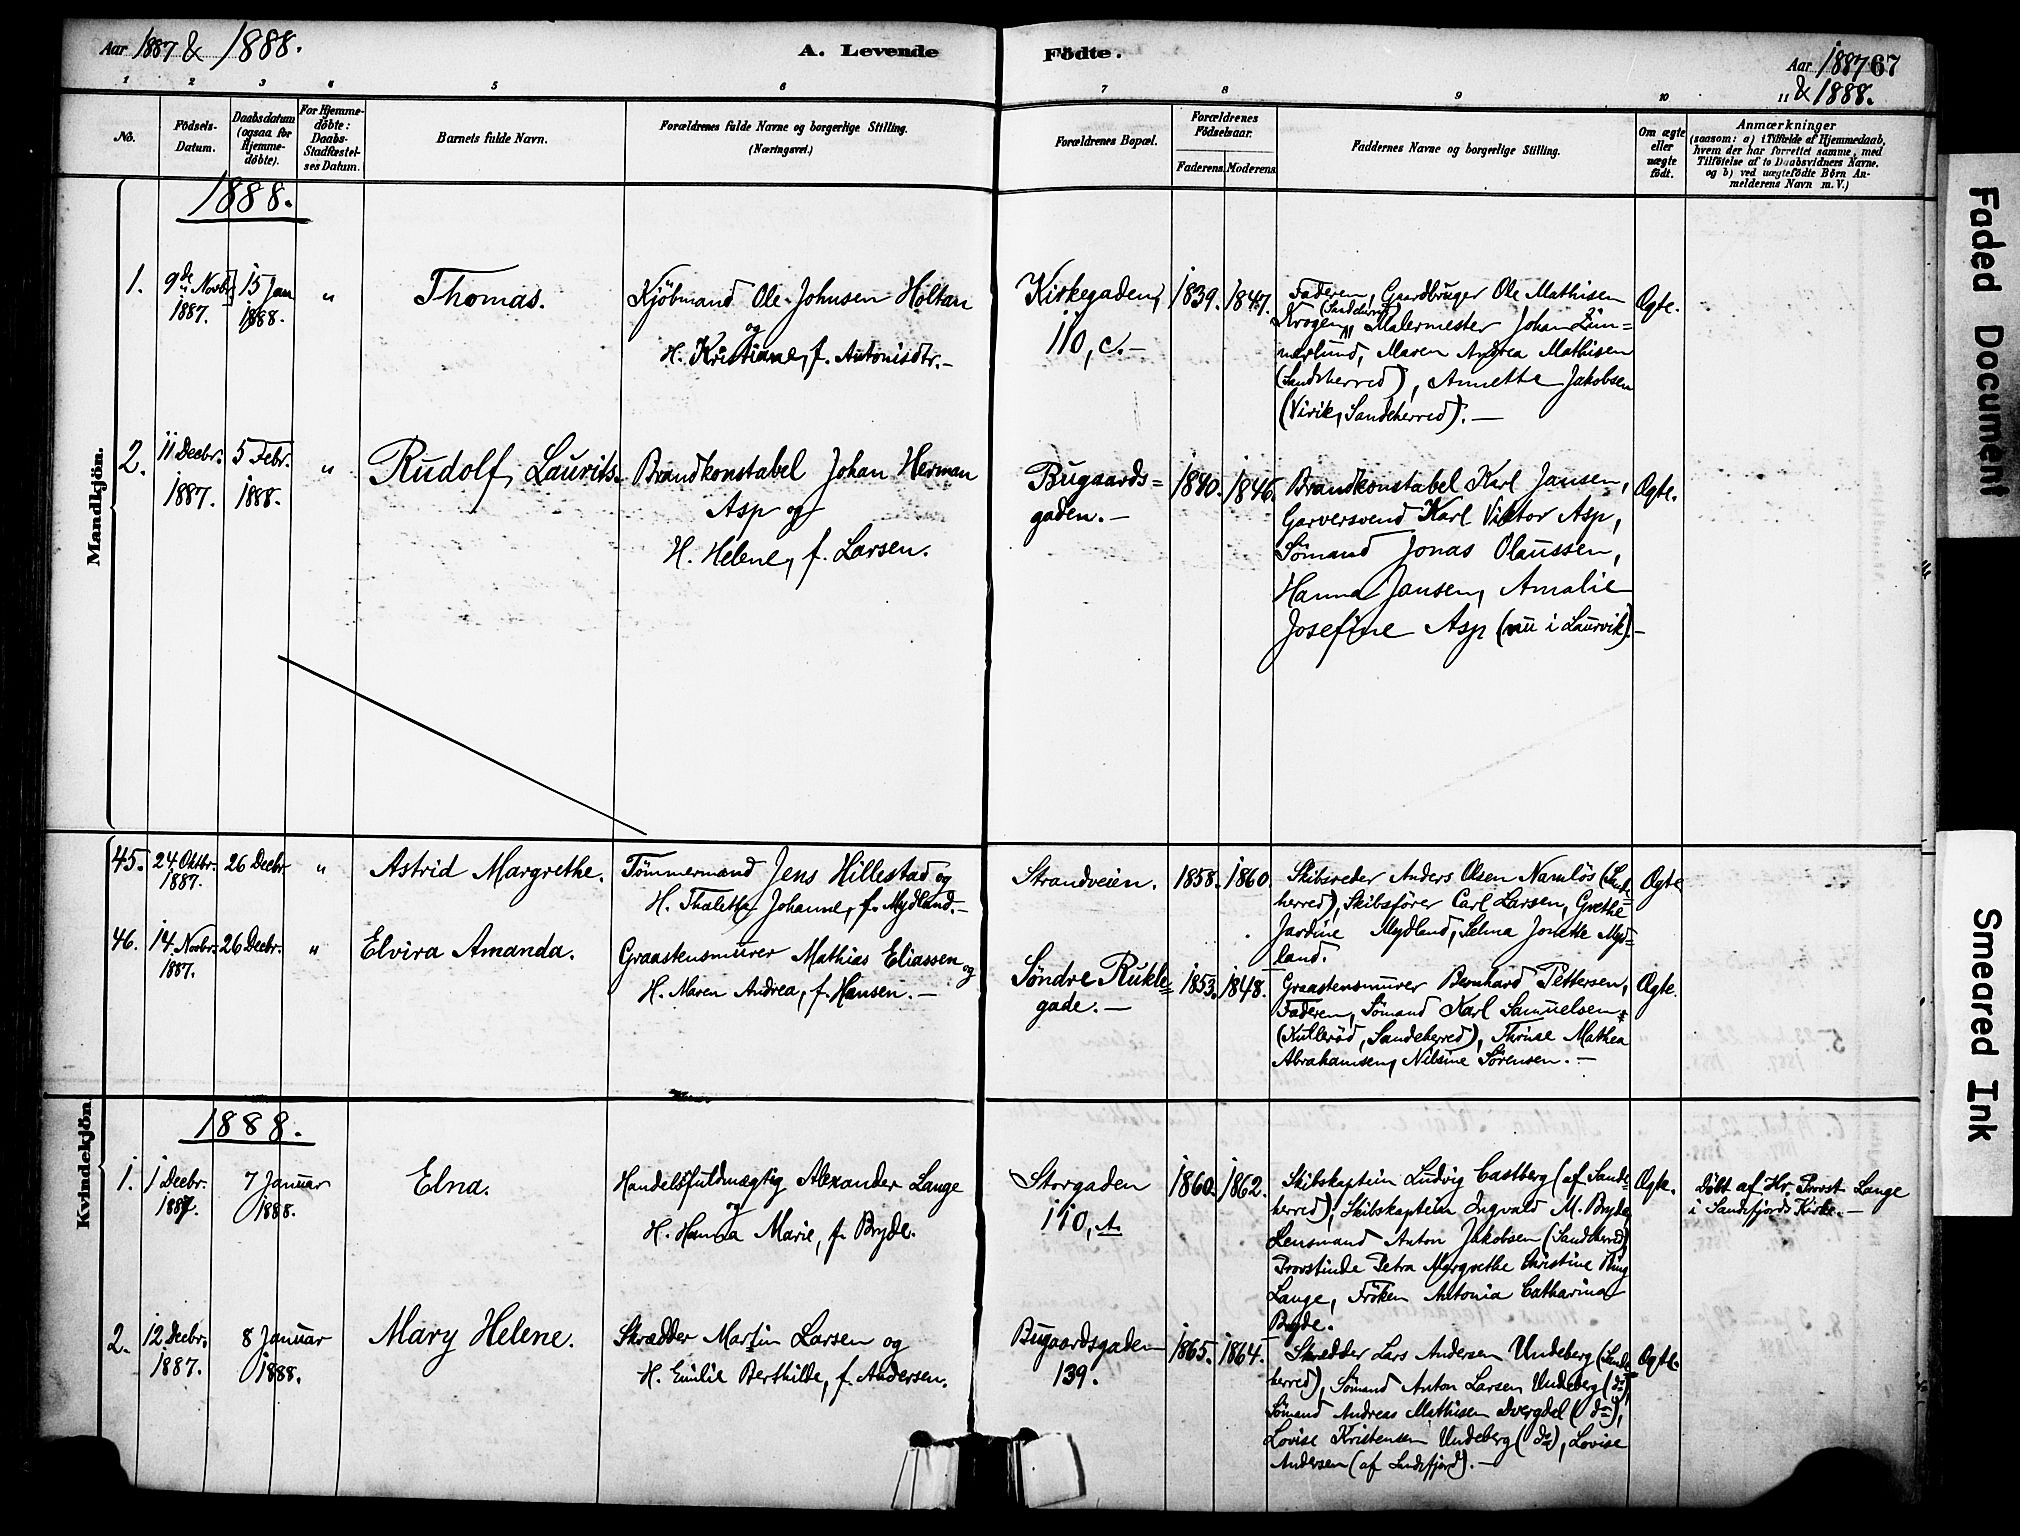 Aar 1887 & 1888.
A. Levende
Födte.
Aar 1887 67
& 1888.
1 2 3 4 5 6 7 8 9 10 11
No.
Födsels-
Datum.
Daabsdatum
(ogsaa for
Hjemme-
døbte).
For Hjemme-
døbte:
Daabs-
Stadfæstel-
ses Datum.
Barnets fulde Navn.
Forældrenes fulde Navne og borgerlige Stilling.
(Næringsvei.)
Forældrenes Bopæl.
Forældrenes
Födselsaar.
Faderens Moderens
Faddernes Navne og borgerlige Stilling.
Om ægte
eller
uægte
født.
Anmærkninger
(saasom: a) i Tilfælde af Hjemmedaab,
hvem der har forrettet samme, med
Tilföielse af to Daabsvidners Navne.
og b) ved uægtefödte Börn An-
melderens Navn m. V.)
Mandkjön.
1888.
1.
9de Novbr.
1887.
15 Jan
1888.
"
Thomas.
Kjöbmand Ole Johnsen Holtan
og
H. Kristiane, f. Antonisdtr.-
Kirkegaden,
110, c.-
1839. 1847.
Faderen, Gaardbruger Ole Mathisen
Krogen, Malermester Johan Zim=
merlund, Maren Andrea Mathisen
(Sandeherred), Annette Jakobsen
(Virik, Sandeherred).-
Ægte.
2.
11 Decbr.
1887.
5 Febr.
1888.
"
Rudolf Laurits.
Brandkonstabel Johan Herman
Asp og
H. Helene, f. Larsen.
Bugaards=
gaden.-
1840. 1846.
Brandkonstabel Karl Jansen,
Garversvend Karl Viktor Asp,
Sømand Jonas Olaussen,
Hanna Jansen, Amalie
Josefine Asp (nu i Laurvik).-
Ægte.
45.
24 Oktbr.
1887.
26 Decbr.
"
Astrid Margrethe.
Tömmermand Jens Hillestad og
H. Thaletta Johanne, f. Mydland.-
Strandveien.
1858. 1860.
Skibsreder Anders Olsen Namløs (Sande
herred), Skibsfører Carl Larsen, Grethe
Jardine Mydland, Selma Jonette Myd=
land.
Ægte
46.
14 Novbr.
1887.
26 Decbr.
"
Elvira Amanda.
Graastensmurer Mathias Eliassen og
H. Maren Andrea, f. Hansen.-
Søndre Rukle=
gade.-
1853. 1848.
Graastensmurer Bernhard Pettersen,
Faderen, Sømand Karl Samuelsen
(Kullerød, Sandeherred), Thrine Mathea
Abrahamsen, Nilsine Sørensen.-
Ægte.
Kvindekjön.
1888.
1.
1 Decbr.
1887.
7 Januar
1888.
Elna.
Handelsfuldmægtig Alexander Lange
og
H. Hanna Marie, f. Bryde.
Storgaden
110, A.
1860. 1862.
Skibskaptein Ludvig Castberg (af Sande=
herred), Skibskaptein Ingvald M. Bryde,
Lensmand Anton Jakobsen (Sandeherred)
Provstinde Petra Margrethe Christine
Lange, Frøken Antonia Catharina
Bryde.
Ægte.
Døbt af Hr. Provst Lange
i Sandefjords Kirke.-
2.
12 Decbr.
1887.
8 Januar
1888.
Mary Helene.
Skrædder Martin Larsen og
H. Emilie Berthilde, f. Andersen.
Bugaardsgaden
139.
1865. 1864.
Skrædder Lars Andersen Undeberg (Sande
herred), Sømand Anton Larsen Undeberg (do),
Sømand Andreas Mathisen Dvergdal (do),
Lovise Kristensen Undeberg (do), Lovise
Andersen (af Sandefjord).-
Ægte.
Faded Document
Smeared Ink